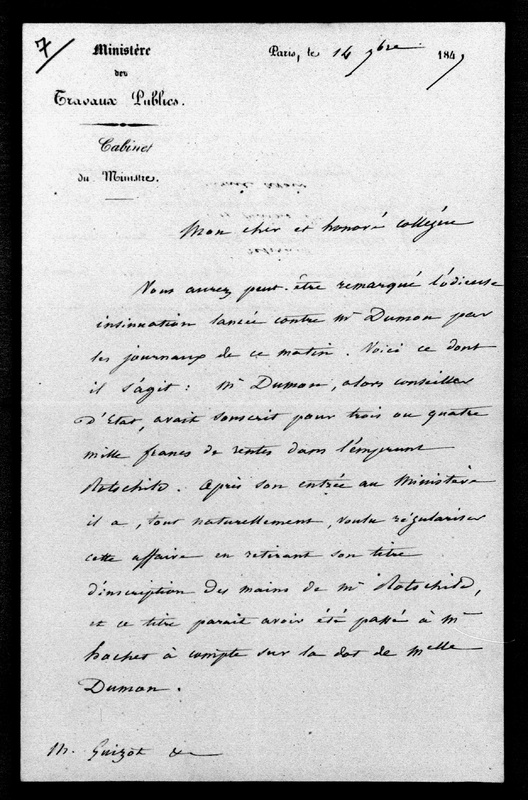 7/
Ministère
des
Travaux Publics.
Cabinet
du Ministre.
Paris, le 14 9bre 1847
Mon cher et honoré collègue
Vous aurez peut-être remarqué l'odieuse
insinuation lancée contre Mr Dumon par
les journaux de ce matin. Voici ce dont
il s'agit : Mr Dumon, alors conseiller
D'Etat, avait souscrit pour trois ou quatre
mille francs de rentes dans l'emprunt
Rotschild. Après son entrée au Ministère
il a, tout naturellement, voulu régulariser
cette affaire en retirant son titre
d'inscription des mains de Mr Rotschild,
et ce titre parait avoir été passé à Mr
hachet à compte sur la dot de Melle
Dumon.
M. Guizot &